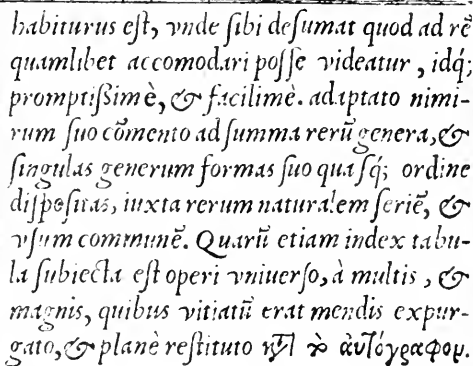 habiturus eſt, vnde ſibi deſumat quod ad rẽ
quamlibet accomodari poſſe videatur, idq́;
promptiſsimè, & facilimè. adaptato nimi-
rum ſuo cõmento ad ſumma rerũ genera, &
ſingulas generum formas ſuo quaſq́; ordine
diſpoſitas, iuxta rerum naturalem ſeriẽ, &
vſum communẽ. Quarũ etiam index tabu-
la ſubiecta eſt operi vniuerſo, à multis, &
magnis, quibus vitiatũ erat mendis expur-
gato, & planè reſtituto κατὰ τὸ ἀυτόγραφομ.